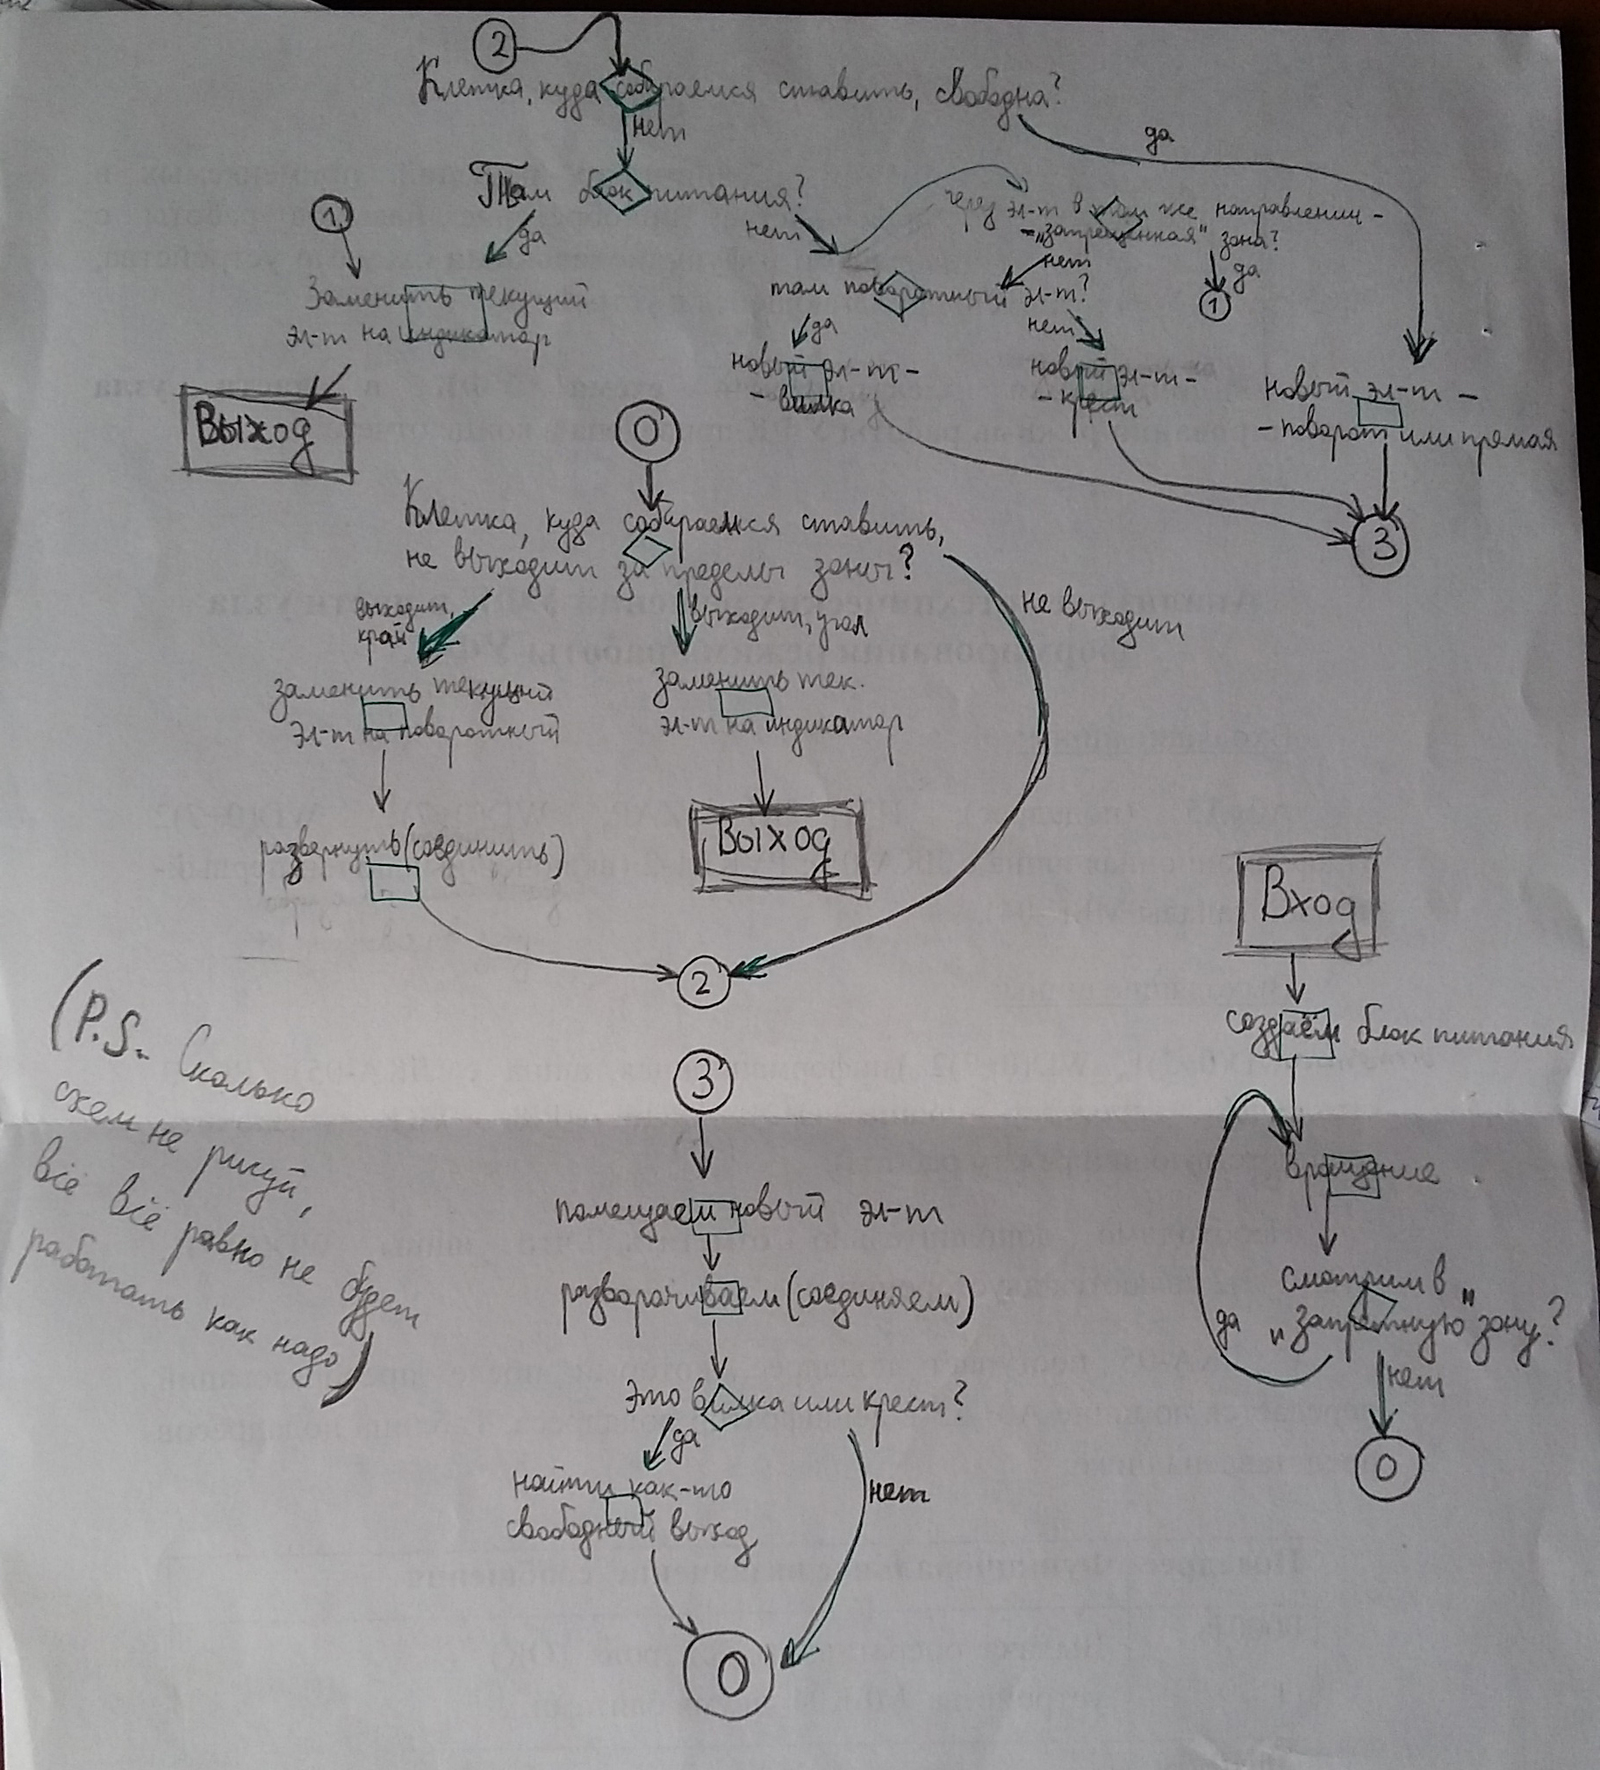 2
Клетка, куда собираемся ставить, свободна?
нет
да
Там блок питания?
1
да
нет
через эл-т в том же направлении -
- „запрещенная" зона?
нет
да
1
Заменить текущий
эл-т на индикатор
Выход
там поворотный эл-т?
да
нет
новый эл-т -
- вилка
новый эл-т -
- крест
новый эл-т -
- поворот или прямая
3
0
Клетка, куда собираемся ставить,
не выходит за пределы зоны?
выходит,
край
выходит, угол
не выходит
заменить текущий
эл-т на поворотный
заменить тек.
эл-т на индикатор
развернуть (соединить)
Выход
2
Вход
создаём блок питания
вращение
смотрим в
„запретную" зону?
да
нет
0
3
помещаем новый эл-т
разворачиваем (соединяем)
Это вилка или крест?
да
нет
найти как-то
свободный выход
0
(P.S. Сколько
схем не рисуй,
всё всё равно не будет
работать как надо)